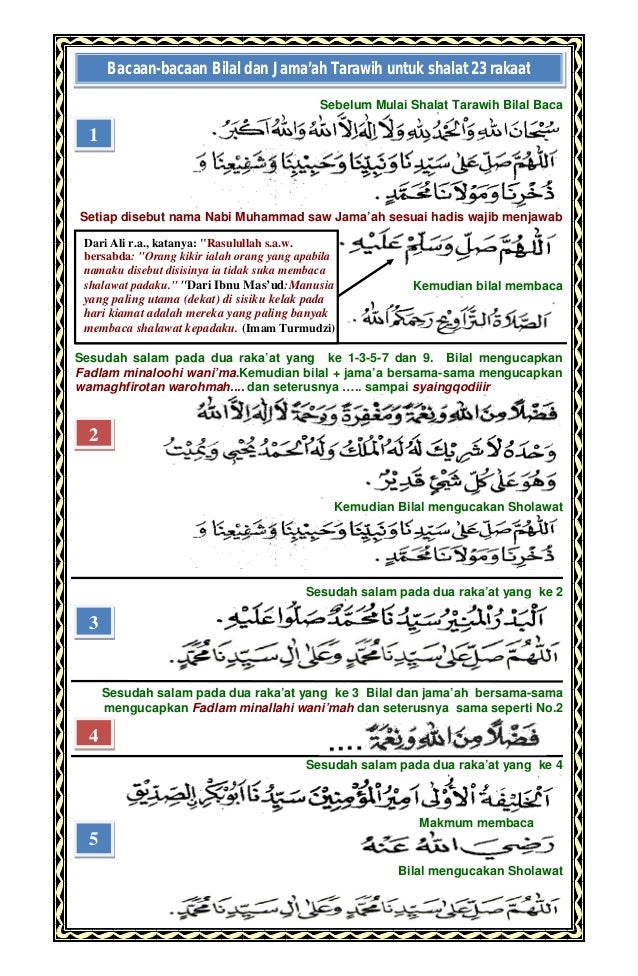 Bacaan-bacaan Bilal dan Jama'ah Tarawih untuk shalat 23 rakaat
Sebelum Mulai Shalat Tarawih Bilal Baca
1
سُبْحَانَ اللهِ وَالْحَمْدُ لِلّٰهِ وَلَا إِلٰهَ إِلَّا اللهُ وَاللهُ أَكْبَرُ .
اَللّٰهُمَّ صَلِّ عَلَى سَيِّدِنَا وَنَبِيِّنَا وَحَبِيْبِنَا وَشَفِيْعِنَا وَ
ذُخْرِنَا وَمَوْلَانَا مُحَمَّدٍ .
Setiap disebut nama Nabi Muhammad saw Jama'ah sesuai hadis wajib menjawab
اَللّٰهُمَّ صَلِّ وَسَلِّمْ عَلَيْهِ .
Dari Ali r.a., katanya: "Rasulullah s.a.w.
bersabda: "Orang kikir ialah orang yang apabila
namaku disebut disisinya ia tidak suka membaca
shalawat padaku." "Dari Ibnu Mas'ud:Manusia
yang paling utama (dekat) di sisiku kelak pada
hari kiamat adalah mereka yang paling banyak
membaca shalawat kepadaku. (Imam Turmudzi)
Kemudian bilal membaca
اَلصَّلَاةُ التَّرَاوِيْحِ رَحِمَكُمُ اللهُ .
Sesudah salam pada dua raka'at yang ke 1-3-5-7 dan 9. Bilal mengucapkan
Fadlam minaloohi wani'ma.Kemudian bilal + jama'a bersama-sama mengucapkan
wamaghfirotan warohmah.... dan seterusnya ….. sampai syaingqodiiir
2
فَضْلًا مِنَ اللهِ وَنِعْمَةً وَمَغْفِرَةً وَرَحْمَةً لَا إِلٰهَ إِلَّا اللهُ
وَحْدَهُ لَا شَرِيْكَ لَهُ لَهُ الْمُلْكُ وَلَهُ الْحَمْدُ يُحْيِي وَيُمِيْتُ
وَهُوَ عَلَى كُلِّ شَيْءٍ قَدِيْرٌ .
Kemudian Bilal mengucakan Sholawat
اَللّٰهُمَّ صَلِّ عَلَى سَيِّدِنَا وَنَبِيِّنَا وَحَبِيْبِنَا وَشَفِيْعِنَا وَ
ذُخْرِنَا وَمَوْلَانَا مُحَمَّدٍ .
Sesudah salam pada dua raka'at yang ke 2
3
اَلْبَدْرُ الْمُنِيْرُ سَيِّدُنَا مُحَمَّدٌ صَلُّوْا عَلَيْهِ .
اَللّٰهُمَّ صَلِّ عَلَى سَيِّدِنَا مُحَمَّدٍ وَعَلَى آلِ سَيِّدِنَا مُحَمَّدٍ .
Sesudah salam pada dua raka'at yang ke 3 Bilal dan jama'ah bersama-sama
mengucapkan Fadlam minallahi wani'mah dan seterusnya sama seperti No.2
4
فَضْلًا مِنَ اللهِ وَنِعْمَةً ....
Sesudah salam pada dua raka'at yang ke 4
اَلْخَلِيْفَةُ الْأُوْلَى اَمِيْرُ الْمُؤْمِنِيْنَ سَيِّدُنَا اَبُوْبَكْرٍ الصِّدِّيْقِ
Makmum membaca
5
رَضِيَ اللهُ عَنْهُ
Bilal mengucakan Sholawat
اَللّٰهُمَّ صَلِّ عَلَى سَيِّدِنَا مُحَمَّدٍ وَعَلَى آلِ سَيِّدِنَا مُحَمَّدٍ .